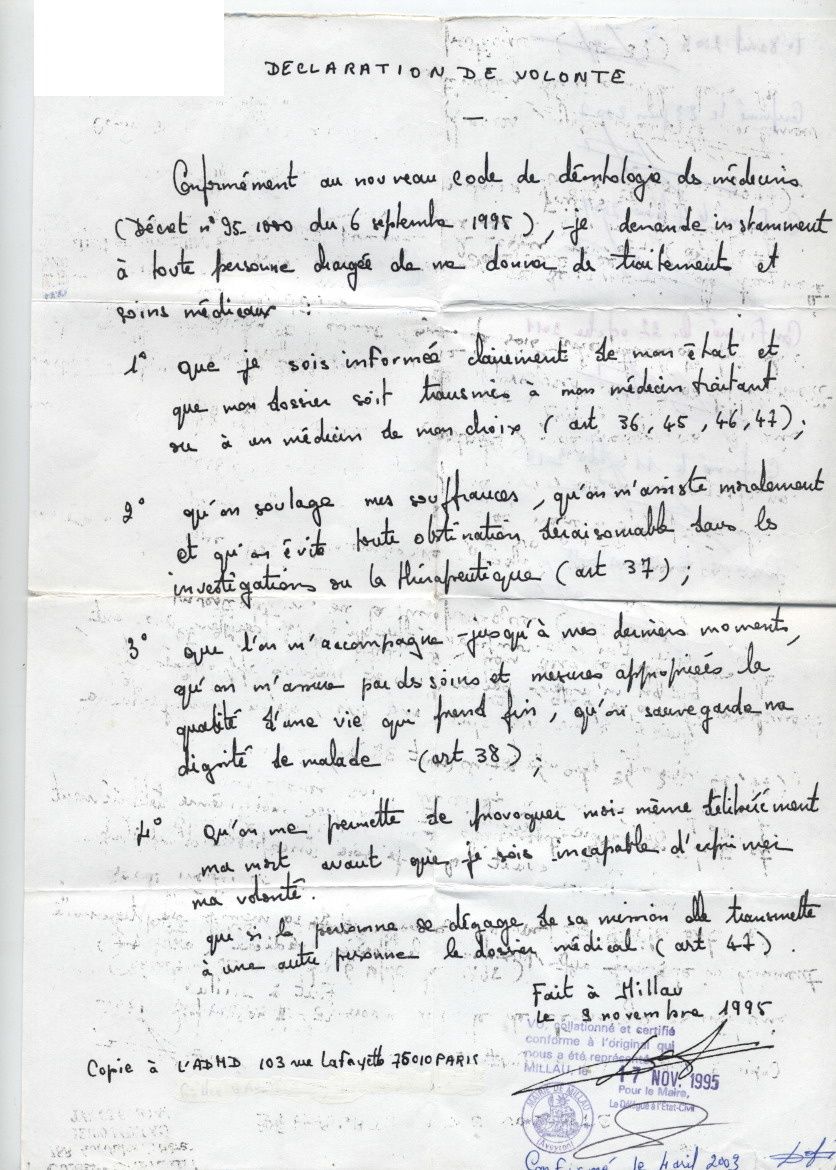 DECLARATION DE VOLONTE
Conformément au nouveau code de déontologie des médecins
(Décret n° 95-1000 du 6 septembre 1995), je demande instamment
à toute personne chargée de me donner de traitements et
soins médicaux :
1° que je sois informée clairement de mon état et
que mon dossier soit transmis à mon médecin traitant
ou à un médecin de mon choix (art 36, 45, 46, 47);
2° qu'on soulage mes souffrances, qu'on m'assiste moralement
et qu'on évite toute obstination déraisonnable dans les
investigations ou la thérapeutique (art 37);
3° que l'on m'accompagne jusqu'à mes derniers moments,
qu'on m'assure par des soins et mesures appropriées la
qualité d'une vie qui prend fin, qu'on sauvegarde ma
dignité de malade (art 38);
4° Qu'on me permette de provoquer moi-même délibérément
ma mort avant que je sois incapable d'exprimer
ma volonté.
que si la personne se dégage de sa mission elle transmette
à une autre personne le dossier médical (art 47).
Fait à Millau
le 9 novembre 1995
VU, collationné et certifié
conforme à l'original qui
nous a été représenté
MILLAU, le 17 NOV. 1995
Pour le Maire,
Le Délégué à l'Etat-Civil
MAIRIE DE MILLAU
(Aveyron)
Copie à L'ADMD 103 rue Lafayette 75010 PARIS
Confirmé le 4 avril 2003